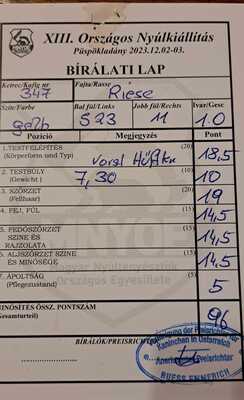 XIII. Országos Nyúlkiállítás
Püspökladány 2023.12.02-03.
BÍRÁLATI LAP
Ketrec/Käfig nr Fajta/Rasse
347 Riese
Szín/Farbe Bal fül/Links Jobb fül/Rechts Ivar/Gesc
gelb S23 11 1.0
Pozíció Megjegyzés Pont
1.TESTFELÉPÍTÉS (20)
(Körperform und Typ) Vorst 18,5
2. TESTSÚLY (10)
(Gewicht ) 7,30 10
3. SZŐRZET (20)
(Fellhaar) 19
4. FEJ, FÜL (15) 14,5
5. FEDŐSZŐRZET (15)
SZÍNE ÉS
RAJZOLATA 14,5
6. ALJSZŐRZET SZÍNE (15)
ÉS MINŐSÉGE 14,5
7. ÁPOLTSÁG (5)
(Pflegezustand) 5
Magyar Nyúltenyésztők
Országos Egyesülete
MINŐSÍTÉS ÖSSZ. PONTSZÁM
Gesamturteil) 96
BÍRÁLÓK/PREISRICHTER
der Preisrichter
Kaninchen in Österreich
Anerkannter Preisrichter
RUESS EMMERICH